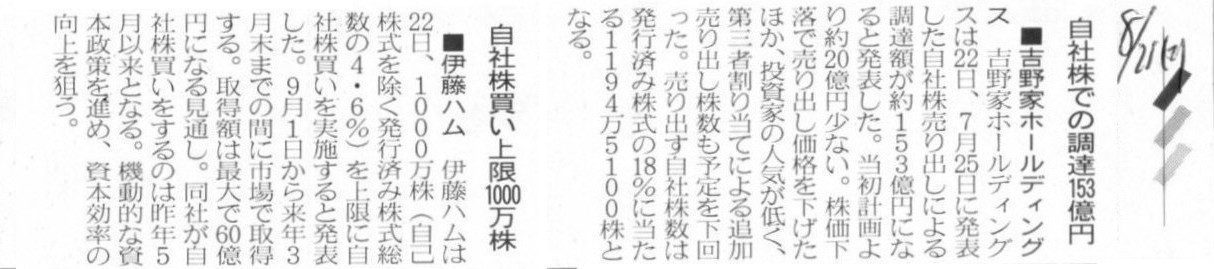 8/21
自社株での調達153億円
■吉野家ホールディング
ス　吉野家ホールディング
スは22日、7月25日に発表
した自社株売り出しによる
調達額が約153億円にな
ると発表した。当初計画よ
り約20億円少ない。株価下
落で売り出し価格を下げた
ほか、投資家の人気が低く、
第三者割り当てによる追加
売り出し株数も予定を下回
った。売り出す自社株数は
発行済み株式の18％に当た
る1194万5100株と
なる。
自社株買い上限1000万株
■伊藤ハム　伊藤ハムは
22日、1000万株（自己
株式を除く発行済み株式総
数の4・6％）を上限に自
社株買いを実施すると発表
した。9月1日から来年3
月末までの間に市場で取得
する。取得額は最大で60億
円になる見通し。同社が自
社株買いをするのは昨年5
月以来となる。機動的な資
本政策を進め、資本効率の
向上を狙う。